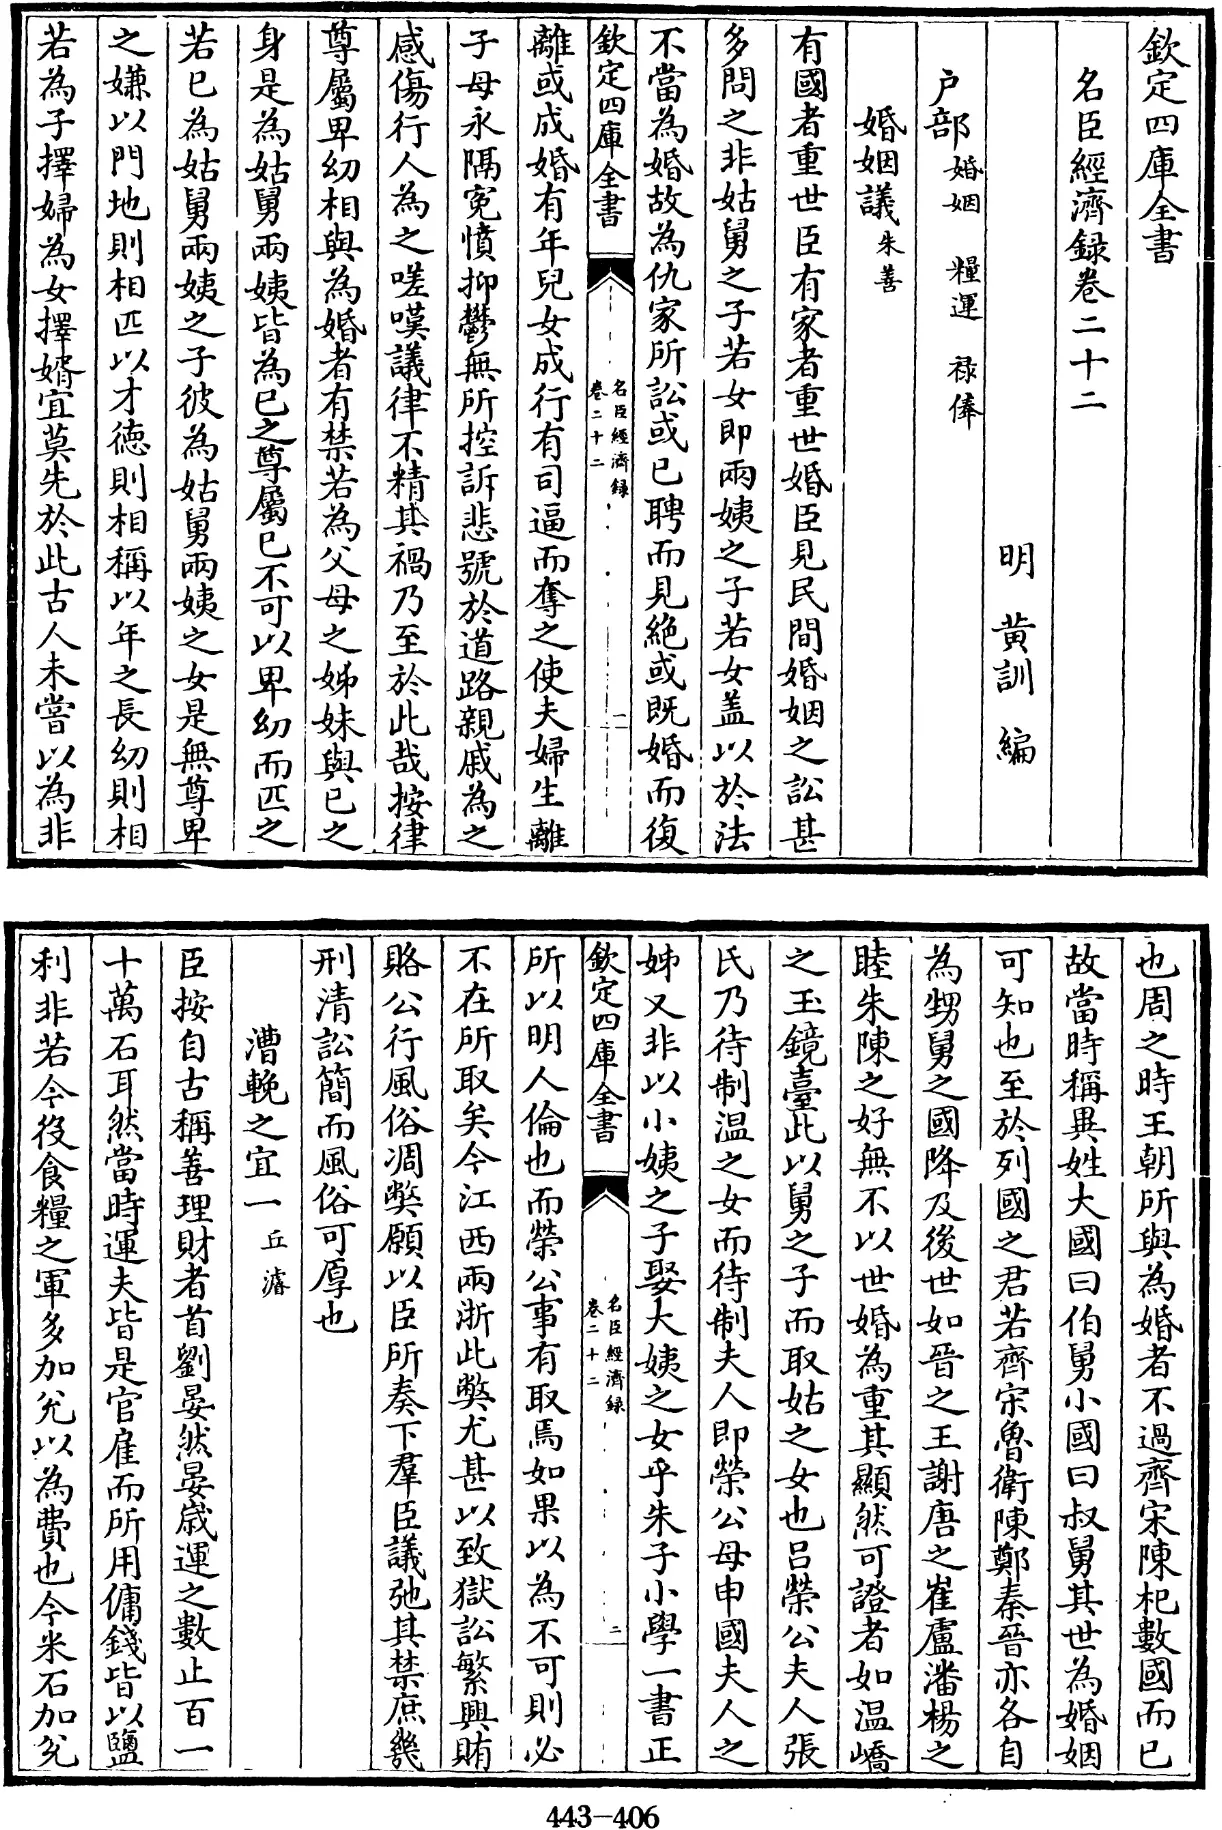 欽定四庫全書
名臣經濟録卷二十二
明 黄訓 編
户部 婚姻 糧運 禄俸
婚姻議 朱善
有國者重世臣有家者重世婚臣見民間婚姻之訟甚
多問之非姑舅之子若女即兩姨之子若女盖以於法
不當為婚故為仇家所訟或已聘而見絶或既婚而復
欽定四庫全書
名臣經濟録
卷二十二
一
離或成婚有年兒女成行有司逼而奪之使夫婦生離
子母永隔寃憤抑鬱無所控訴悲號於道路親戚為之
感傷行人為之嗟嘆議律不精其禍乃至於此哉按律
尊屬卑幼相與為婚者有禁若為父母之姊妹與已之
身是為姑舅兩姨皆為已之尊屬已不可以卑幼而匹之
若已為姑舅兩姨之子彼為姑舅兩姨之女是無尊卑
之嫌以門地則相匹以才徳則相稱以年之長幼則相
若為子擇婦為女擇婿宜莫先於此古人未嘗以為非
也周之時王朝所與為婚者不過齊宋陳杞數國而已
故當時稱異姓大國曰伯舅小國曰叔舅其世為婚姻
可知也至於列國之君若齊宋魯衛陳鄭秦晉亦各自
為甥舅之國降及後世如晉之王謝唐之崔盧潘楊之
睦朱陳之好無不以世婚為重其顯然可證者如温嶠
之玉鏡臺此以舅之子而取姑之女也吕榮公夫人張
氏乃待制温之女而待制夫人即榮公母申國夫人之
姊又非以小姨之子娶大姨之女乎朱子小學一書正
欽定四庫全書
名臣經濟録
卷二十二
二
所以明人倫也而榮公事有取焉如果以為不可則必
不在所取矣今江西兩浙此弊尤甚以致獄訟繁興賄
賂公行風俗凋弊願以臣所奏下羣臣議弛其禁庶幾
刑清訟簡而風俗可厚也
漕輓之宜一 丘濬
臣按自古稱善理財者首劉晏然晏嵗運之數止百一
十萬石耳然當時運夫皆是官雇而所用傭錢皆以鹽
利非若今役食糧之軍多加兊以為費也今米石加兊
443—406